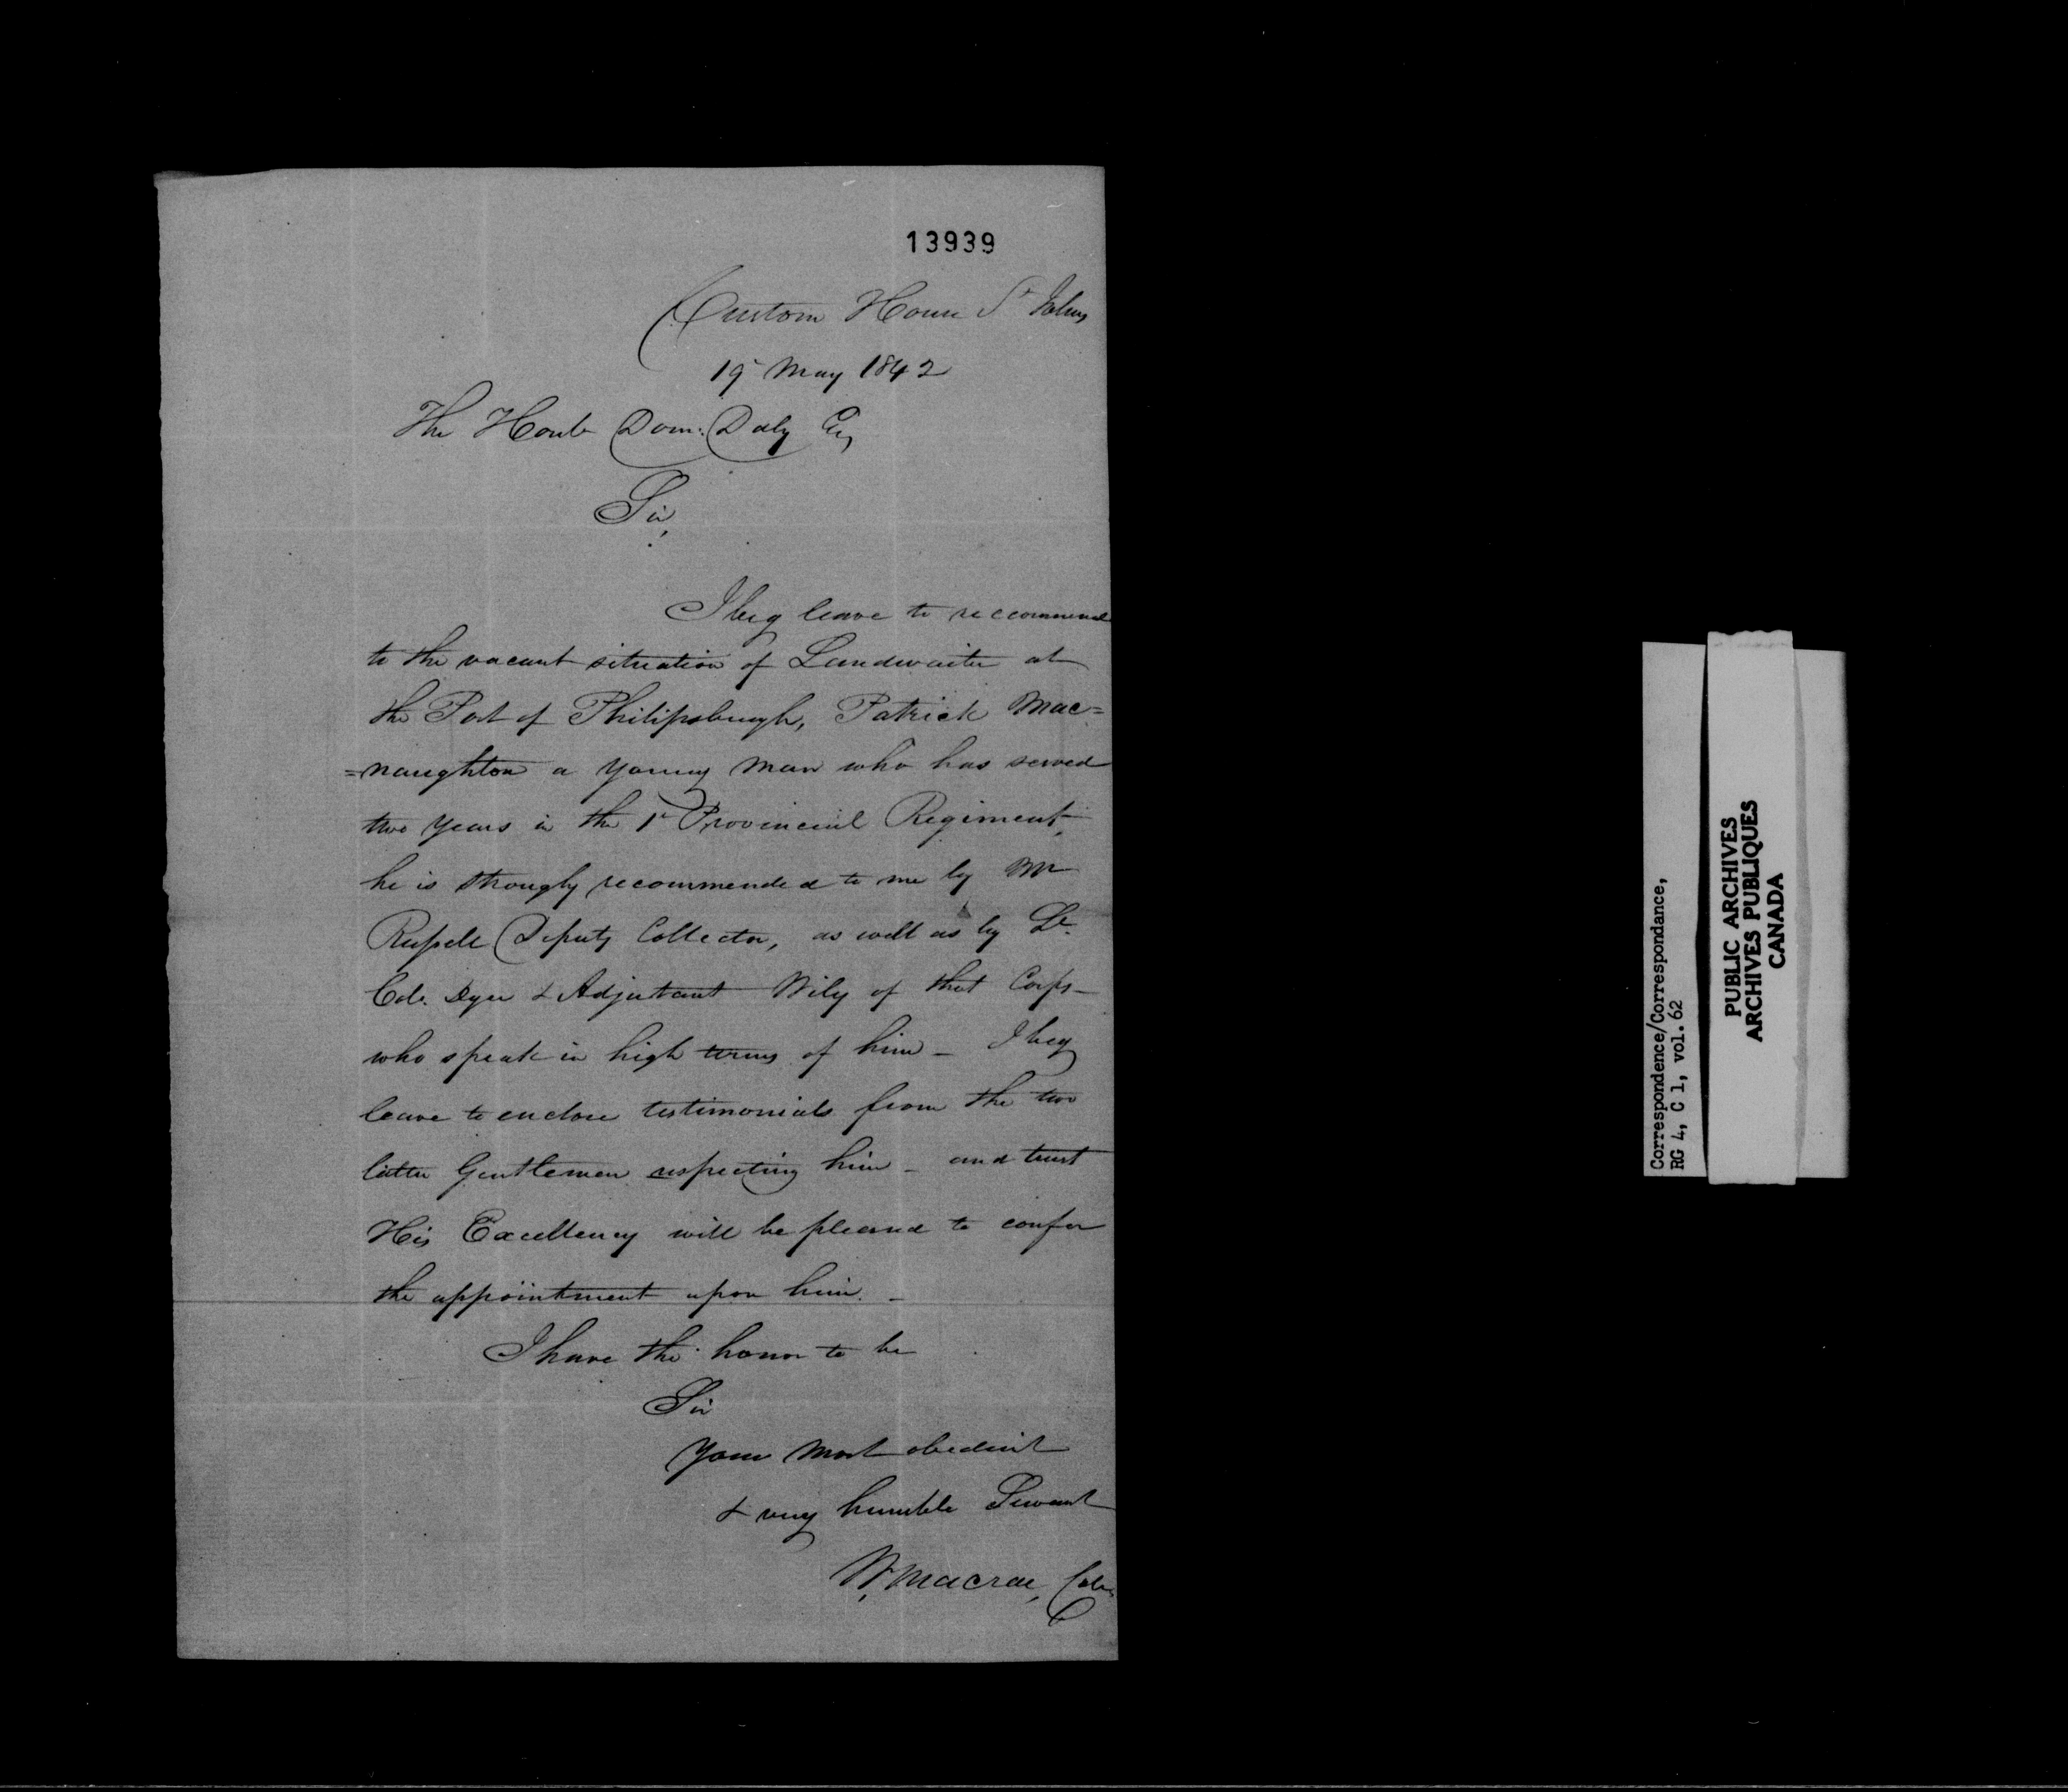 13939
Custom House St Johns
19 May 1842
The Honle Dom: Daly Esq
Sir,
I beg leave to reccommend
to the vacant situation of Landwaiter at
the Port of Philipsburgh, Patrick Mac=
=naughton a young man who has served
two years in the 1st Provincial Regiment,
he is strongly recommended to me by Mr
Russell Deputy Collector, as well as by Lt.
Col. Dyer & Adjutant Wily of that Corps -
who speak in high terms of him - I beg
leave to enclose testimonials from the two
latter Gentlemen respecting him - and trust
His Excellency will be pleased to confer
the appointment upon him. -
I have the honor to be
Sir
Your most obedient
& very humble Servant
W. Macrae,
Correspondence/Correspondance,
RG 4, C 1, vol. 62
PUBLIC ARCHIVES
ARCHIVES PUBLIQUES
CANADA